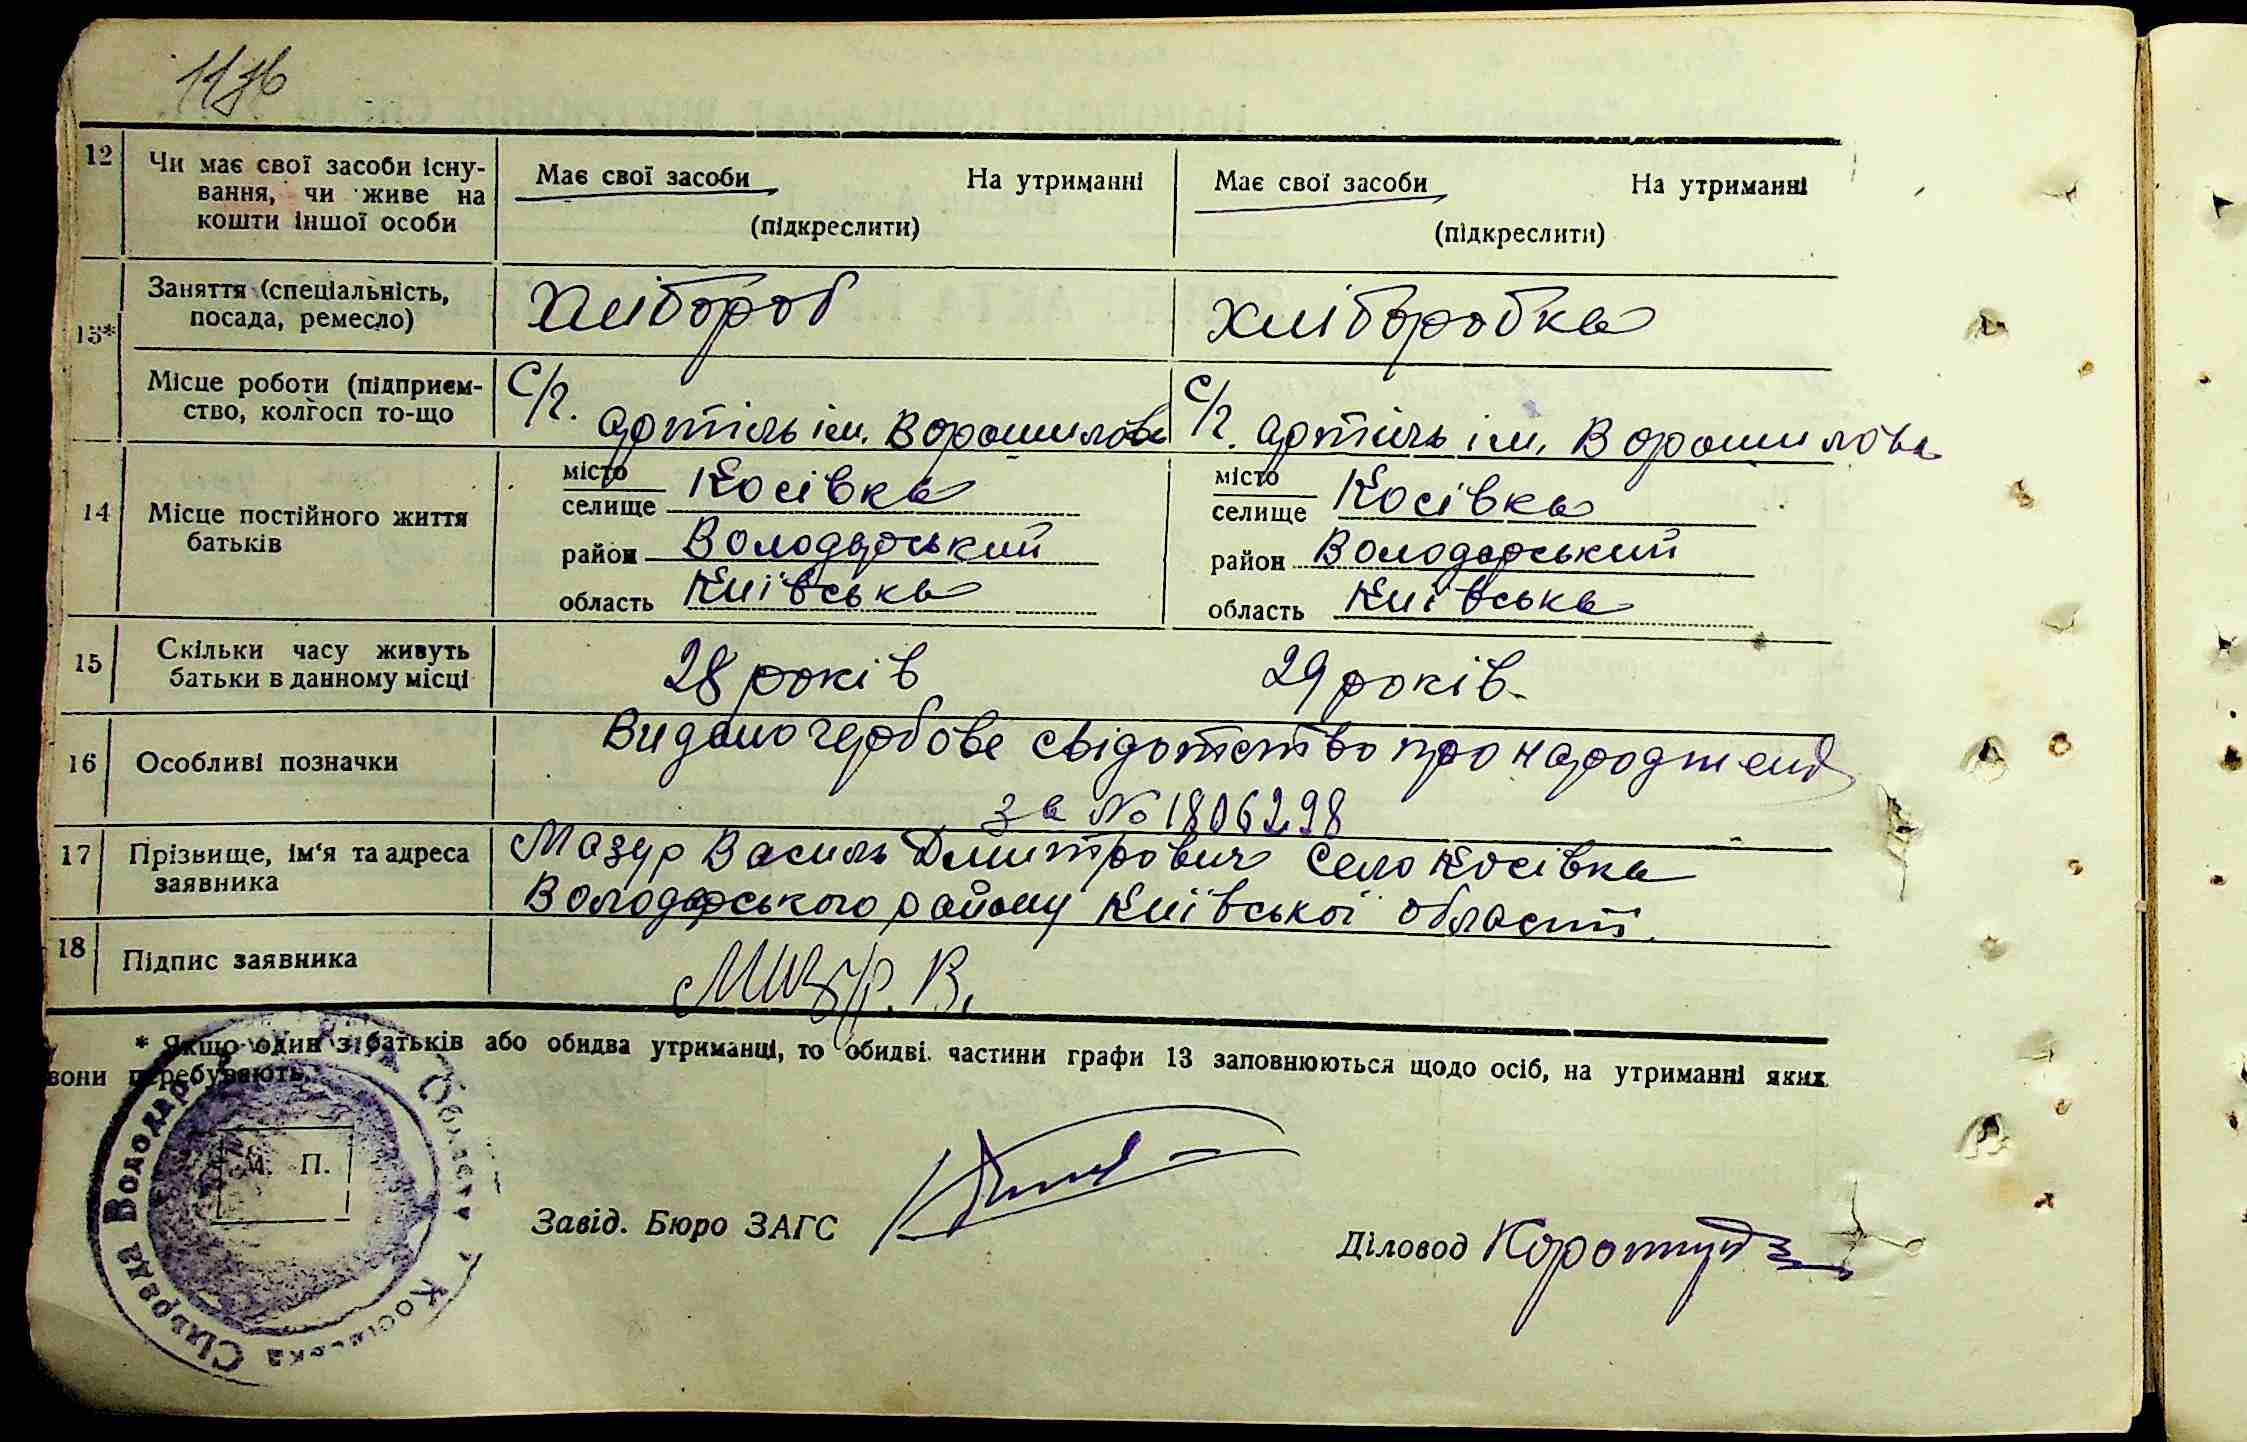 12 Чи має свої засоби існу- Має свої засоби На утриманні Має свої засоби На утриманні
вання, чи живе на
кошти іншої особи (підкреслити) (підкреслити)
13* Заняття (спеціальність,
посада, ремесло) Хлібороб Хліборобка
Місце роботи (підприєм- С/г. С/г.
ство, колгосп то-що артіль ім. Ворошилова артіль ім. Ворошилова
14 Місце постійного життя
батьків
місто Косівка місто Косівка
селище селище
район Володарський район Володарський
область Київська область Київська
15 Скільки часу живуть
батьки в данному місці 28 років 29 років.
16 Особливі позначки Видано гербове свідотство про народження
за № 1806298
17 Прізвище, ім'я та адреса Мазур Василь Дмитрович село Косівка
заявника Володарського району Київської області.
18 Підпис заявника Мазур. В.
* Якщо один з батьків або обидва утриманці, то обидві частини графи 13 заповнюються щодо осіб, на утриманні яких
вони перебувають.
М. П.
Завід. Бюро ЗАГС
Діловод
Косівська Сільрада Володар